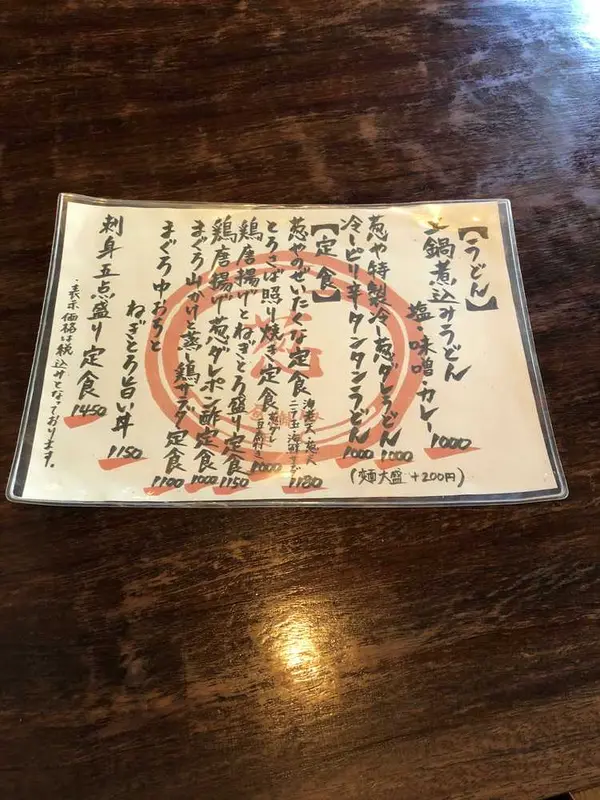 【うどん】
土鍋煮込みうどん
塩・味噌・カレー 1000
葱や特製冷し葱ダレうどん 1000
冷しピリ辛タンタンうどん 1000
(麺大盛 +200円)
【定食】
葱やのぜいたくな定食 1180
とろさば照り焼き定食 1000
鶏唐揚げとねぎとろ盛り定食 1150
鶏唐揚げ葱ダレポン酢定食 1000
まぐろ山かけと蒸し鶏サラダ定食 1100
まぐろ中おちと
ねぎとろ旨い丼 1150
刺身五点盛り定食 1450
・表示価格は税込みとなっております。
葱